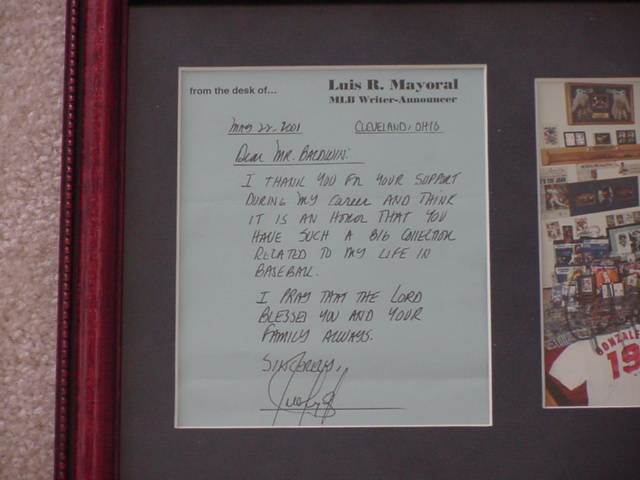 from the desk of... Luis R. Mayoral
MLB Writer-Announcer
May 22, 2001 CLEVELAND, OHIO
Dear MR. BALDWIN:
I THANK YOU FOR YOUR SUPPORT
DURING MY CAREER AND THINK
IT IS AN HONOR THAT YOU
HAVE SUCH A BIG COLLECTION
RELATED TO MY LIFE IN
BASEBALL.
I PRAY THAT THE LORD
BLESSES YOU AND YOUR
FAMILY ALWAYS.
SINCERELY,
GONZALE
19